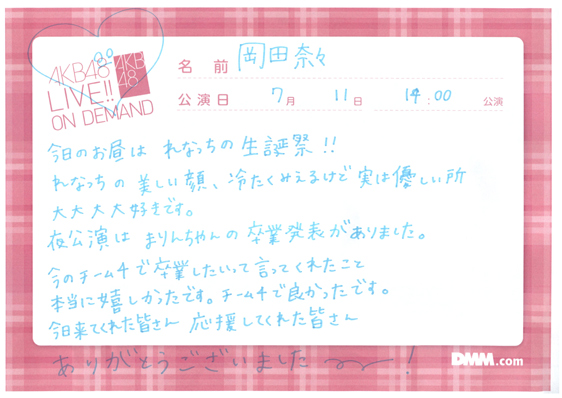 AKB48
LIVE!!
ON DEMAND
AKB
48
名 前 岡田奈々
公演日 7月 11日 14:00 公演
今日のお昼は れなっちの 生誕祭!!
れなっちの 美しい顔、冷たくみえるけど 実は優しい所
大大大大好きです。
夜公演は まりんちゃんの 卒業発表がありました。
今のチーム4で卒業したいって言ってくれたこと
本当に嬉しかったです。チーム4で良かったです。
今日来てくれた皆さん 応援してくれた皆さん
ありがとうございました 〜〜!
DMM.com